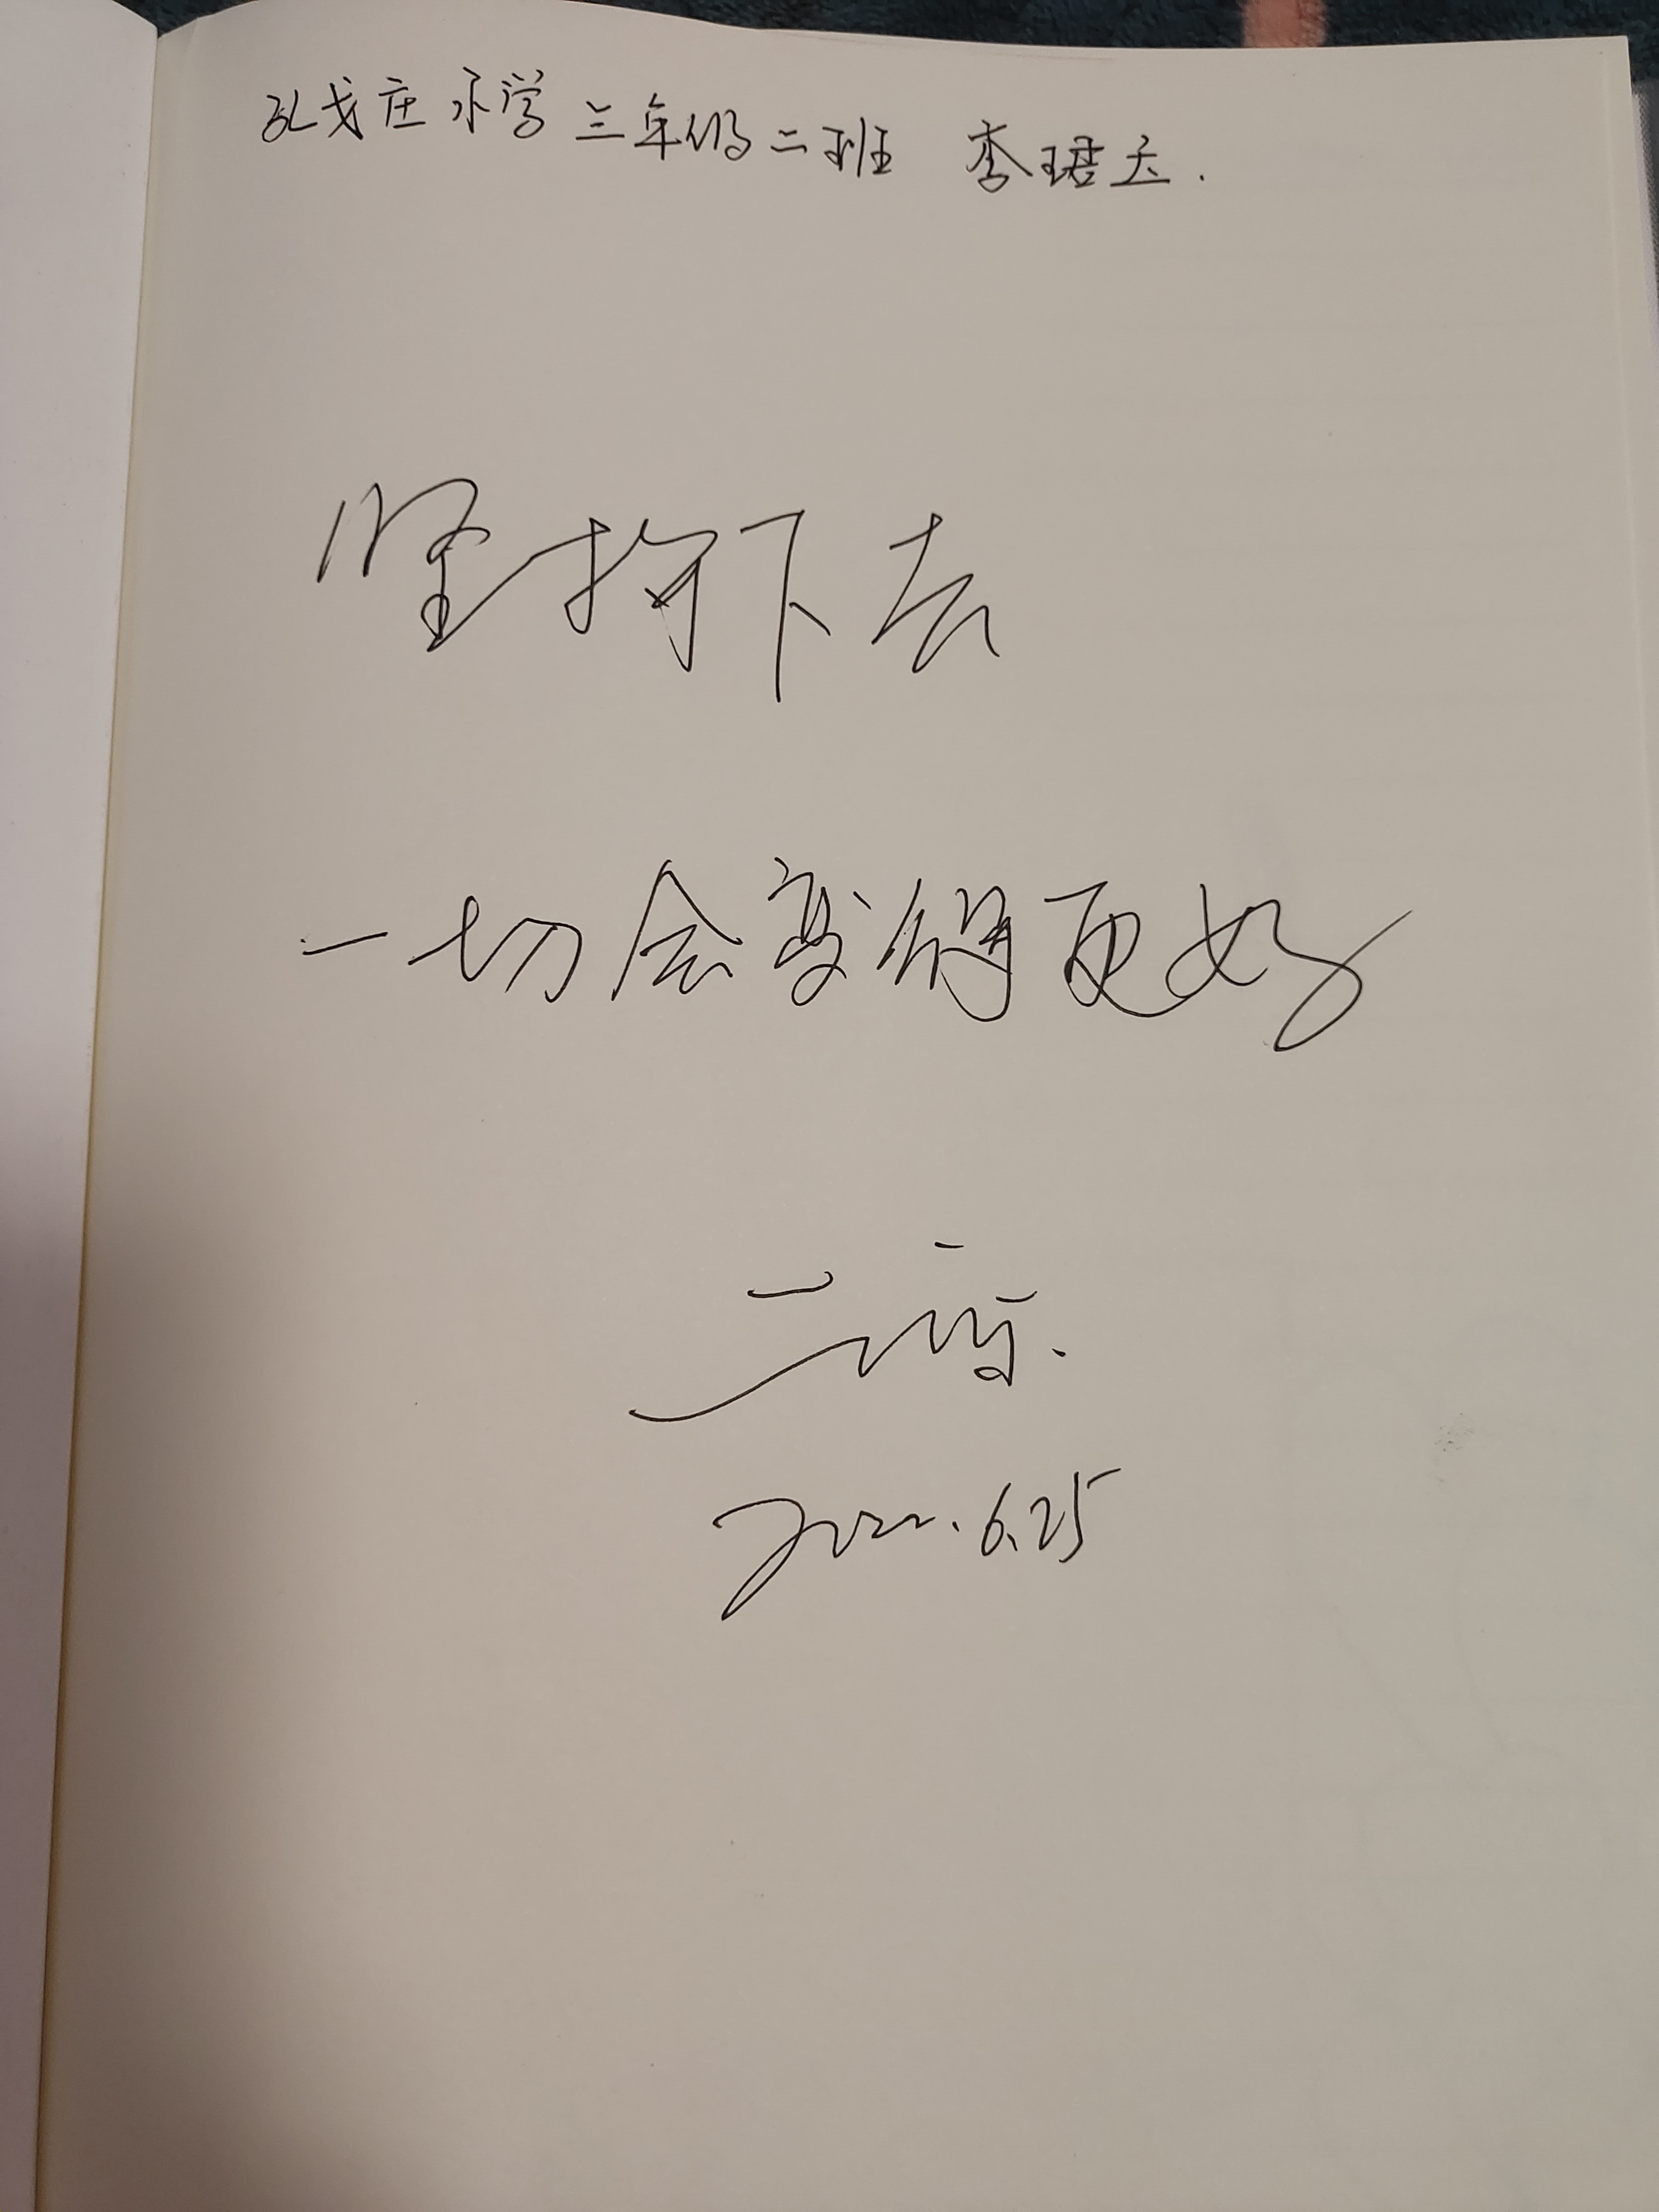 孔戈庄小学 三年级二班 李珺玉.
坚持下去
一切会变得更好
2022.6.25